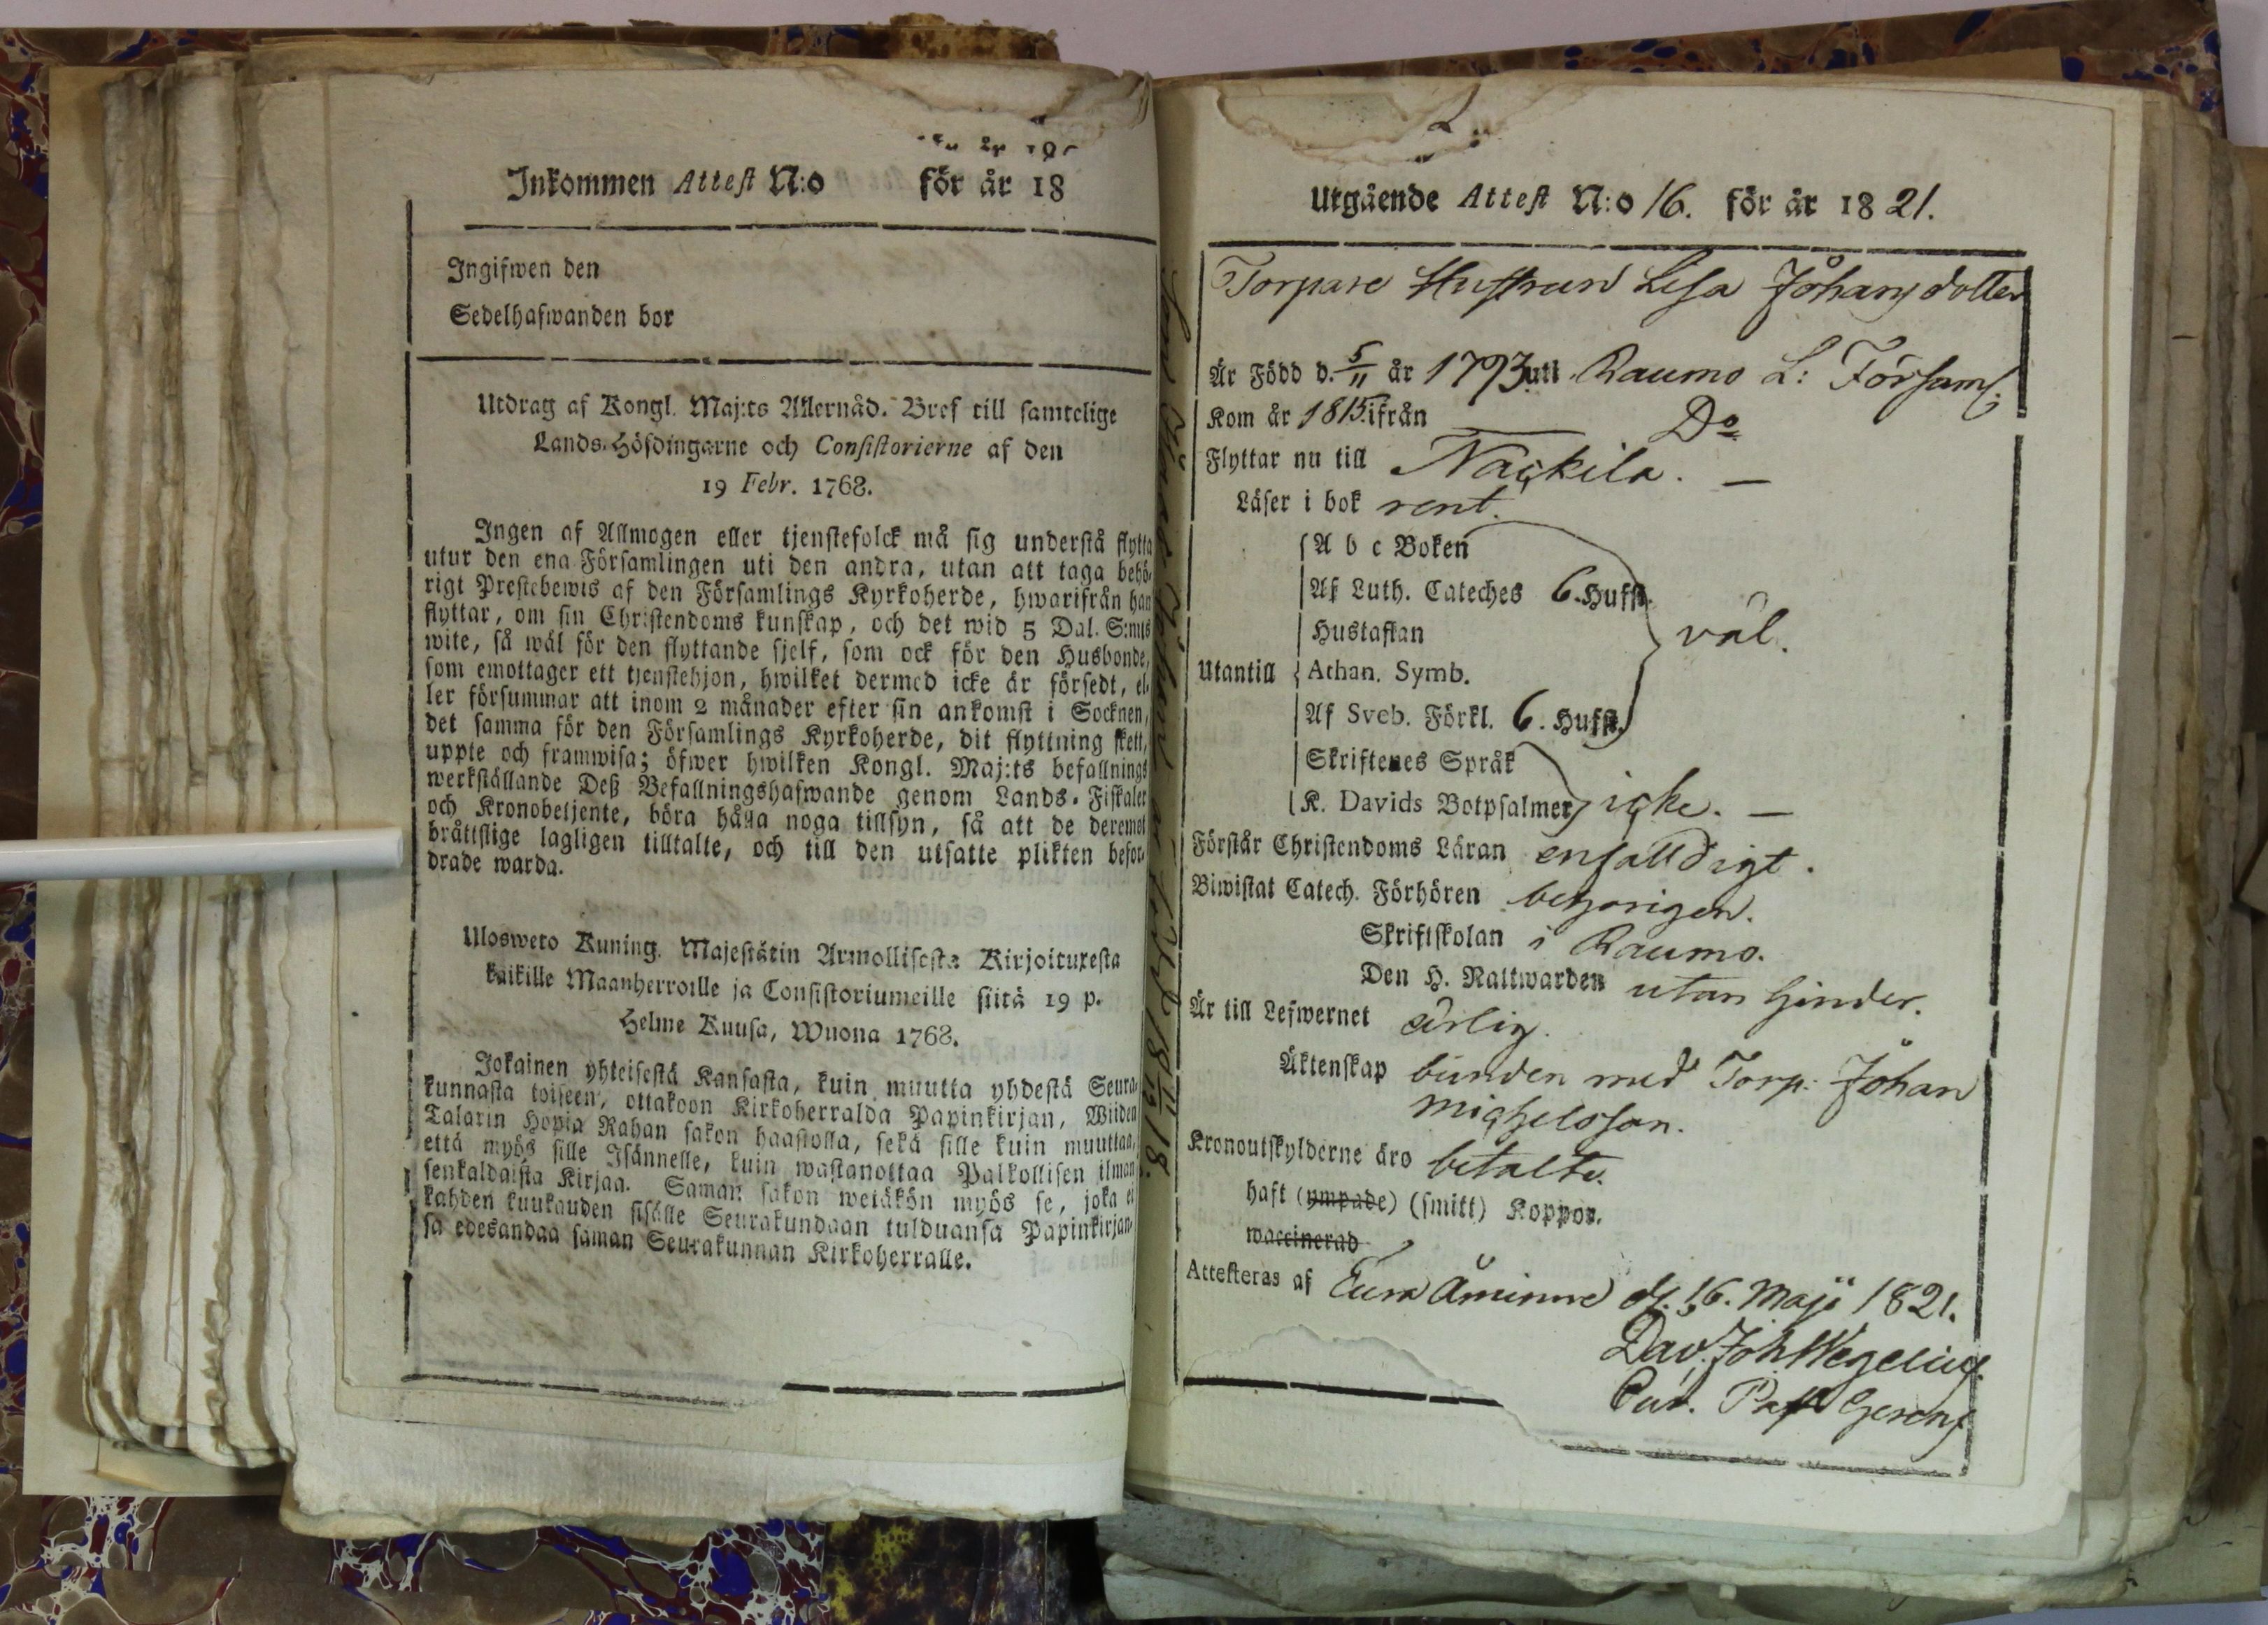 Inkommen Attest N:o för år 18
Ingifwen den
Sedelhafwanden bor
Utdrag af Kongl. Maj:ts Allernåd. Bref till samtelige
Lands-Höfdingarne och Consistorierne af den
19 Febr. 1768.
Ingen af Allmogen eller tjenstefolck må sig understå flytta
utur den ena Församlingen uti den andra, utan att taga behö-
rigt Prestebewis af den Församlings Kyrkoherde, hwarifrån han
flyttar, om sin Christendoms kunskap, och det wid 5 Dal. S:mts
wite, så wäl för den flyttande sjelf, som ock för den Husbonde,
som emottager ett tjenstehjon, hwilket dermed icke är försedt, el-
ler försummar att inom 2 månader efter sin ankomst i Socknen,
det samma för den Församlings Kyrkoherde, dit flyttning skett,
uppte och framwisa; öfwer hwilken Kongl. Maj:ts befallnings
werkställande Deß Befallningshafwande genom Lands-Fiskaler
och Kronobetjente, böra hålla noga tillsyn, så att de deremot
bråttslige lagligen tilltalte, och till den utsatte plikten befor-
drade warda.
Ulosweto Kuning. Majestätin Armollisesta Kirjoituxesta
kaikille Maanherroille ja Consistoriumeille siitä 19 p.
Helme Kuusa, Wuona 1768.
Jokainen yhteisestä Kansasta, kuin muutta yhdestä Seura-
kunnasta toiseen, ottakoon Kirkoherralda Papinkirjan, Wiiden
Talarin Hopia Rahan sakon haastolla, sekä sille kuin muuttaa,
että myös sille Isännelle, kuin wastanottaa Palkollisen ilman
senkaldaista Kirjaa. Saman sakon wetäkön myös se, joka ei
kahden kuukauden sisälle Seurakundaan tulduansa Papinkirjan-
sa edesandaa saman Seurakunnan Kirkoherralle.
Utgående Attest N:o 16. för år 18 21.
Torpare Hustrun Lisa Johansdotter
Är Född d. 5/11 år 1793 uti Raumo L: Församl.
Kom år 1815 ifrån Do
Flyttar nu till Nackila. —
Läser i bok rent.
A b c Boken
Af Luth. Cateches 6. Hufst.
Hustaflan väl.
Utantill Athan. Symb.
Af Sveb. Förkl. 6. Hufst.
Skriftenes Språk
K. Davids Botpsalmer icke. —
Förstår Christendoms Läran enfalldigt.
Biwistat Catech. Förhören behörigen.
Skriftskolan i Raumo.
Den H. Nattwarden utan hinder.
Är till Lefwernet ärlig.
Äktenskap bunden med Torp. Johan
Michelsson.
Kronoutskylderne äro betalte.
haft (ympade) (smitt) Koppor.
waccinerad
Attesteras af Eura Åminne d. 16. Maji 1821.
Dav. Joh Wegelius.